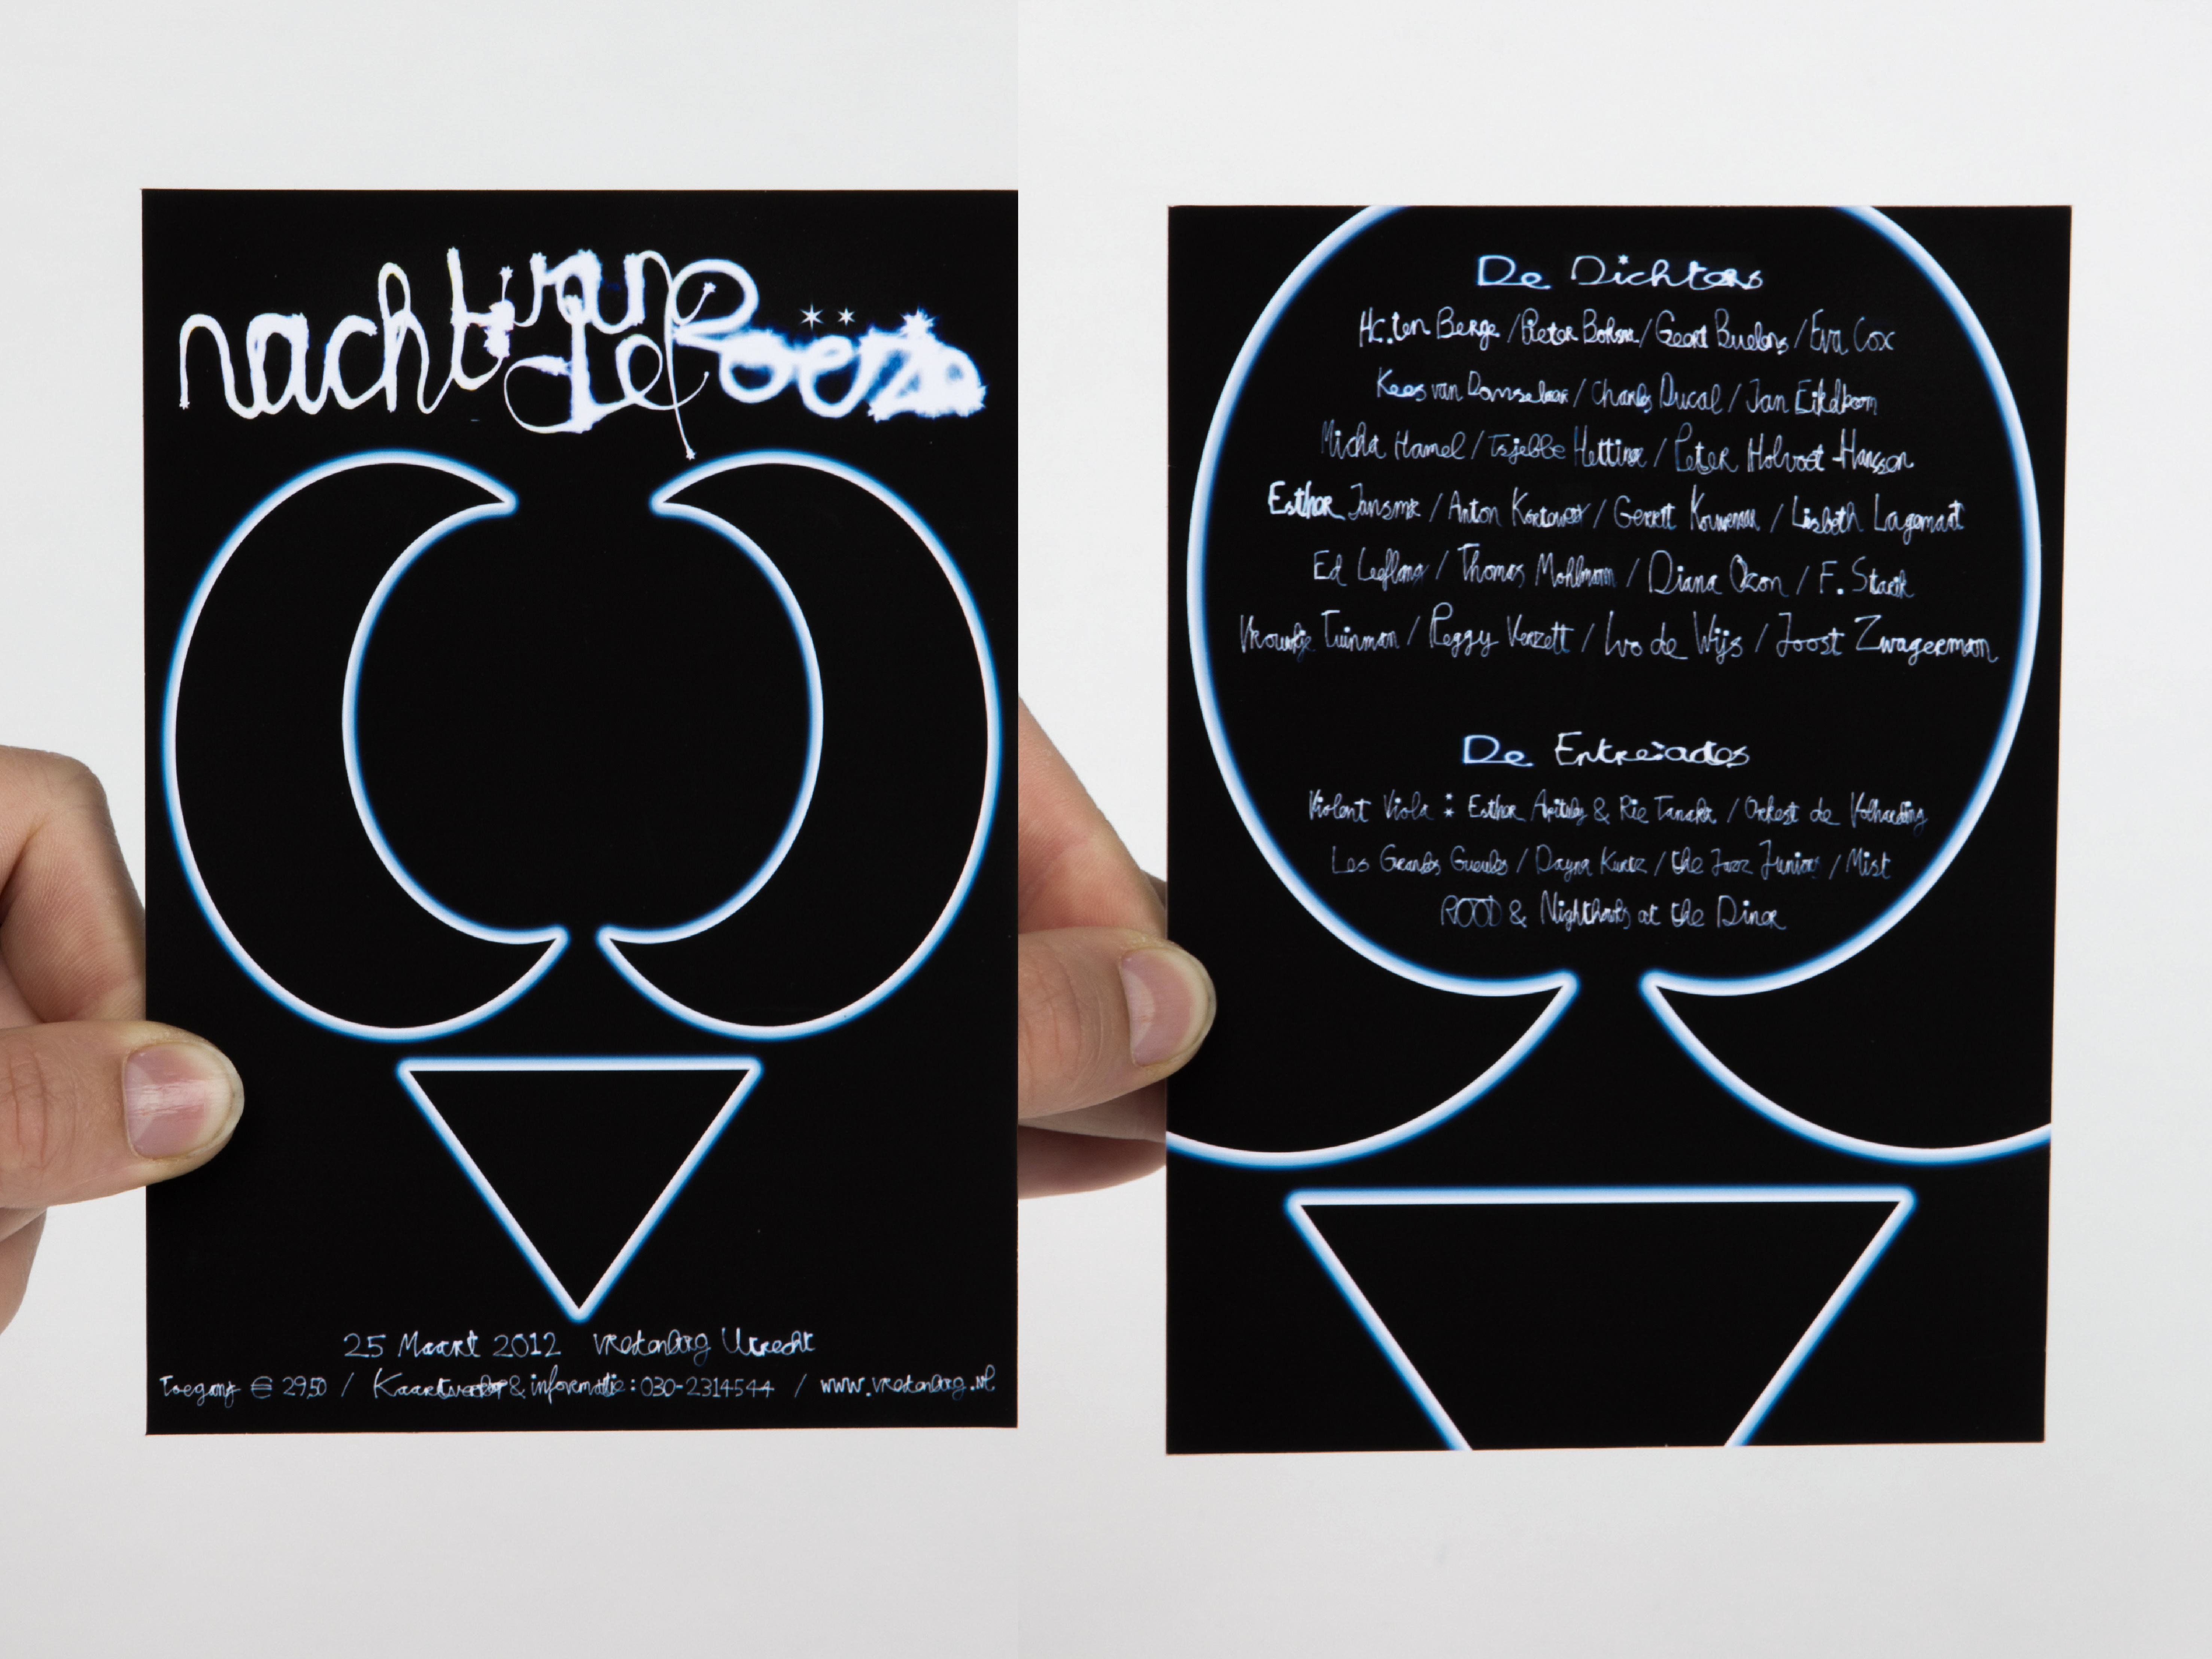 nacht van
de Poëzie
25 Maart 2012 Vredenburg Utrecht
Toegang € 29,50 / Kaartverkoop & informatie: 030-2314544 / www.vredenburg.nl
De Dichters
H.C. ten Berge / Pieter Boskma / Geert Buelens / Eva Cox
Kees van Domselaar / Charles Ducal / Jan Eijkelboom
Micha Hamel / Tsjebbe Hettinga / Peter Holvoet-Hanssen
Esther Jansma / Anton Korteweg / Gerrit Kouwenaar / Liesbeth Lagemaat
Ed Leeflang / Thomas Möhlmann / Diana Ozon / F. Starik
Vrouwkje Tuinman / Peggy Verzett / Ivo de Wijs / Joost Zwagerman
De Entre'actes
Violent Viola : Esther Apituley & Rie Tanaka / Orkest de Volharding
Les Grandes Gueules / Dayna Kurtz / the Jazz Juniors / Mist
ROOD & Nighthawks at the Diner